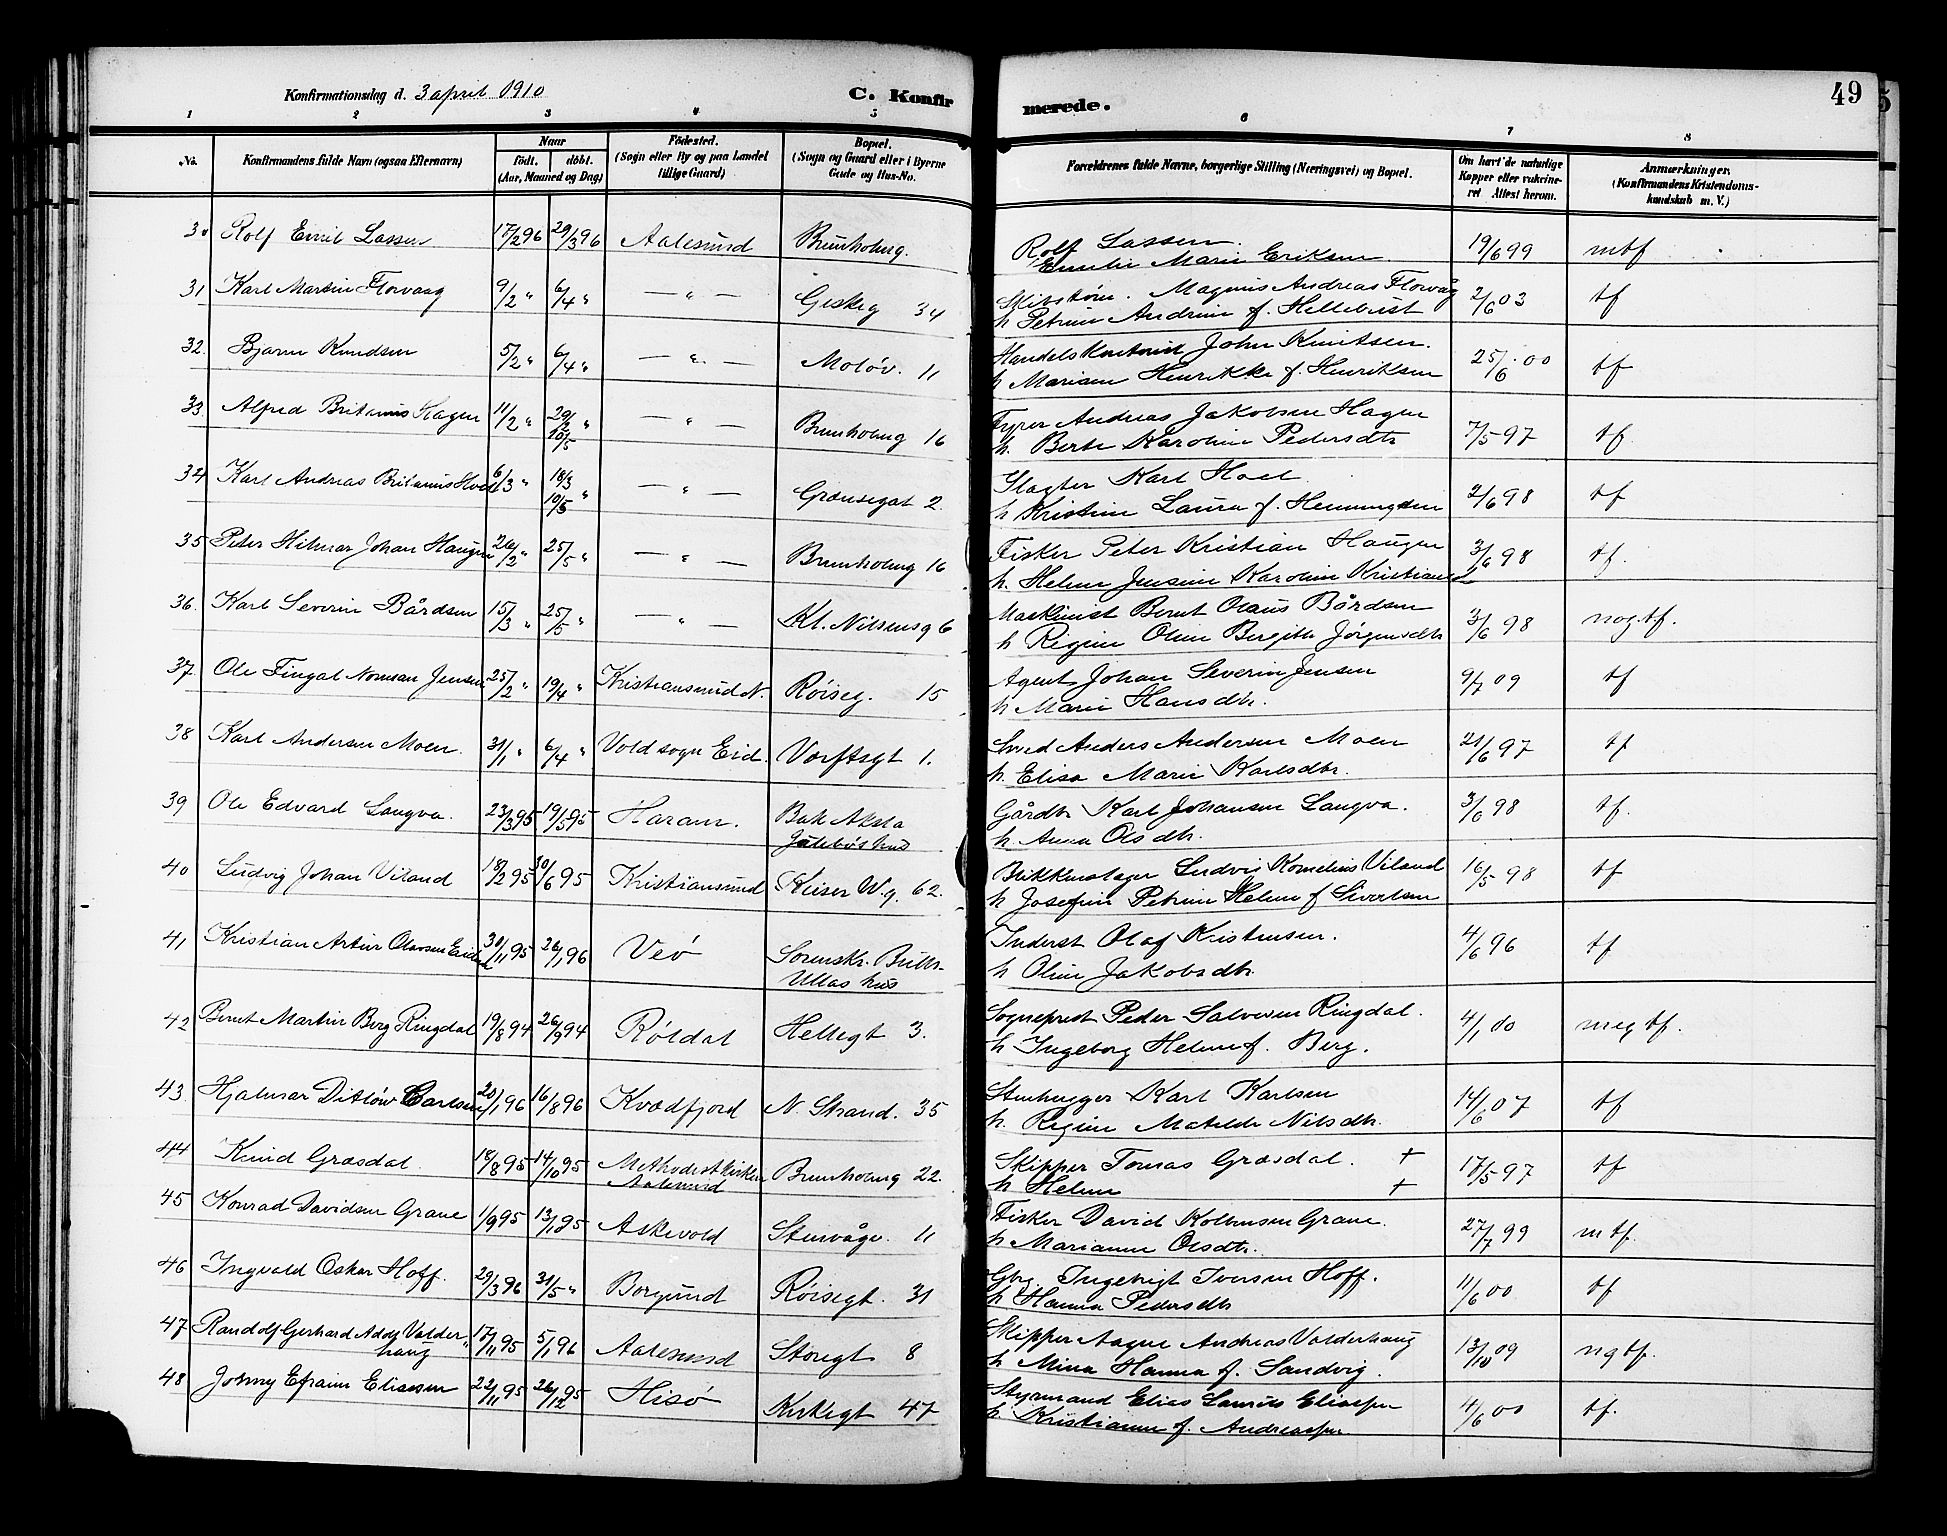 Konfirmationsdag d. 3 april 1910
C. Konfir
merede.
49
1 2 3 4 5 6 7 8
No. Konfirmandens fulde Navn (ogsaa Efternavn) Naar født. døbt. (Aar, Maaned og Dag) Fødested. (Sogn eller By og paa Landet tillige Gaard) Bopæl. (Sogn og Gaard eller i Byerne Gade og Hus-No. Forældrenes fulde Navne, borgerlige Stilling (Næringsvei) og Bopæl. Om havt de naturlige Kopper eller vakcineret Attest herom. Anmærkninger. (Konfirmandens Kristendomskundskab m. V.)
30 Rolf Emil Lassen 17/2 96 29/3 96 Aalesund Brunholmg. Rolf Lassen. 19/6 99 mtf
Emilie Marie Eriksen
31 Karl Martin Florvaag 9/2 " 6/4 " — " — Giskeg 34 Skibstøm. Magnus Andreas Florvåg 2/6 03 tf
h Petrine Andrine f. Hellebust
32. Bjarne Knudsen 5/2 " 6/4 " — " — Moløv. 11 Handelskontorist John Knutsen. 25/6 00 tf
h Mariane Henrikke f. Henriksen
33. Alfred Britanius Hagen 11/2 " 29/2 " 10/5 — " — Brunholmg 16 Fyrer Andreas Jakobsen Hagen 7/5 97 tf
h. Berte Karoline Pedersdtr
34 Karl Andreas Britanius Hoel 6/3 " 18/3 10/5 " — " — Grænsegat 2. Slagter Karl Hoel 2/6 98 tf
h Kristine Laura f. Henningsen
35 Peter Hilmar Johan Haugen 26/2 " 25/5 " — " — Brunholmg 16 Fisker Peter Kristian Haugen 3/6 98 tf.
h. Helene Jensine Karoline Kristiansd
36. Karl Severin Bårdsen 15/3 " 25/5 " — " — Kl. Nilsensg 6 Maskinist Bernt Olaus Bårdsen 3/6 98 nog.tf.
h Regine Oline Bergitte Jørgensdtr
37. Ole Fingal Norman Jensen 25/2 " 19/4 " Kristiansund N. Røiseg. 15 Agent Johan Severin Jensen 9/7 09 tf
h Marie Hansdtr.
38 Karl Andersen Moen. 31/1 " 6/4 " Voldsogn Eid. Værftsgt 1. Smed Anders Andersen Moen 21/6 97 tf
h. Elisa Marie Karlsdtr.
39 Ole Edvard Langva. 23/3 95 19/5 95 Haram. Bak Aksla Gårdbr Karl Johansen Langva. 3/6 98 tf.
h Anna Olsdtr.
40 Ludvig Johan Viland 18/2 95 30/6 95 Kristiansund Keiser W.g. 62. Blikkenslager Ludvig Kornelius Viland 16/5 98 tf
h Josefine Petrine Helene f Sivertsen
41 Kristian Artur Olavsen 30/11 95 26/1 96 Veø Sorenskr. Bulls- Inderst Olaf Kristensen. 4/6 96 tf
Ullas hus h Oline Jakobsdtr.
42 Bernt Martin Berg Ringdal 19/8 94 26/9 94 Røldal Hellegt 3. Sogneprest Peder Salvesen Ringdal. 4/1 00 meg tf.
h Ingeborg Helene f. Berg.
43. Hjalmar Ditløw Carlsen 20/1 96 16/8 96 Kvædfjord N. Strand. 35 Stenhugger Karl Karlsen 14/6 07 tf
h. Regine Matilde Nilsdtr.
44 Knud Græsdal. 18/8 95 14/10 95 Methodistkirken Brunholmg 22. Skipper Tomas Græsdal. + 17/5 97 tf
Aalesund h Helene +
45 Konrad Davidsen Grane 11/9 95 13/1 95 Askevold Stenvågv. 11 Fisker David Kolbensen Grane. 27/7 99 mtf.
h Marianne Olsdtr.
46 Ingvald Oskar Hoff. 29/3 96 31/5 " Borgund Røisegt. 31 Gbr. Ingebrigt Iversen Hoff. 11/6 00 tf
h Hanna Pedersdtr
47 Randolf Gerhard Adolf Valder- 17/11 95 5/1 96 Aalesund Storegt 8 Skipper Aage Andreas Valderhaug 13/10 09 ngtf.
haug h Mina Hanna f. Sandvig.
48 Johnny Efraim Eliassen 22/11 95 26/12 95 Hisø Kirkegt 47 Styrmand Elias Laurits Eliassen 4/6 00 tf.
h. Kristianne f. Andreassen